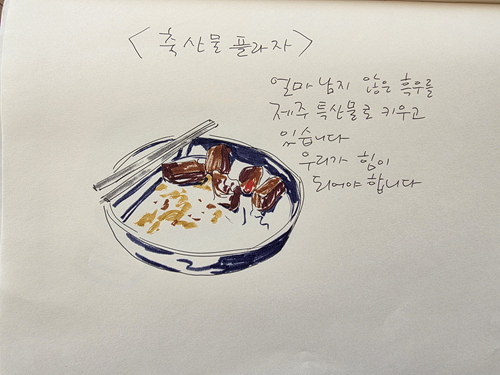 <축산물 플라자>
얼마 남지 않은 흑우를
제주 특산물로 키우고
있습니다
우리가 힘이
되어야 합니다